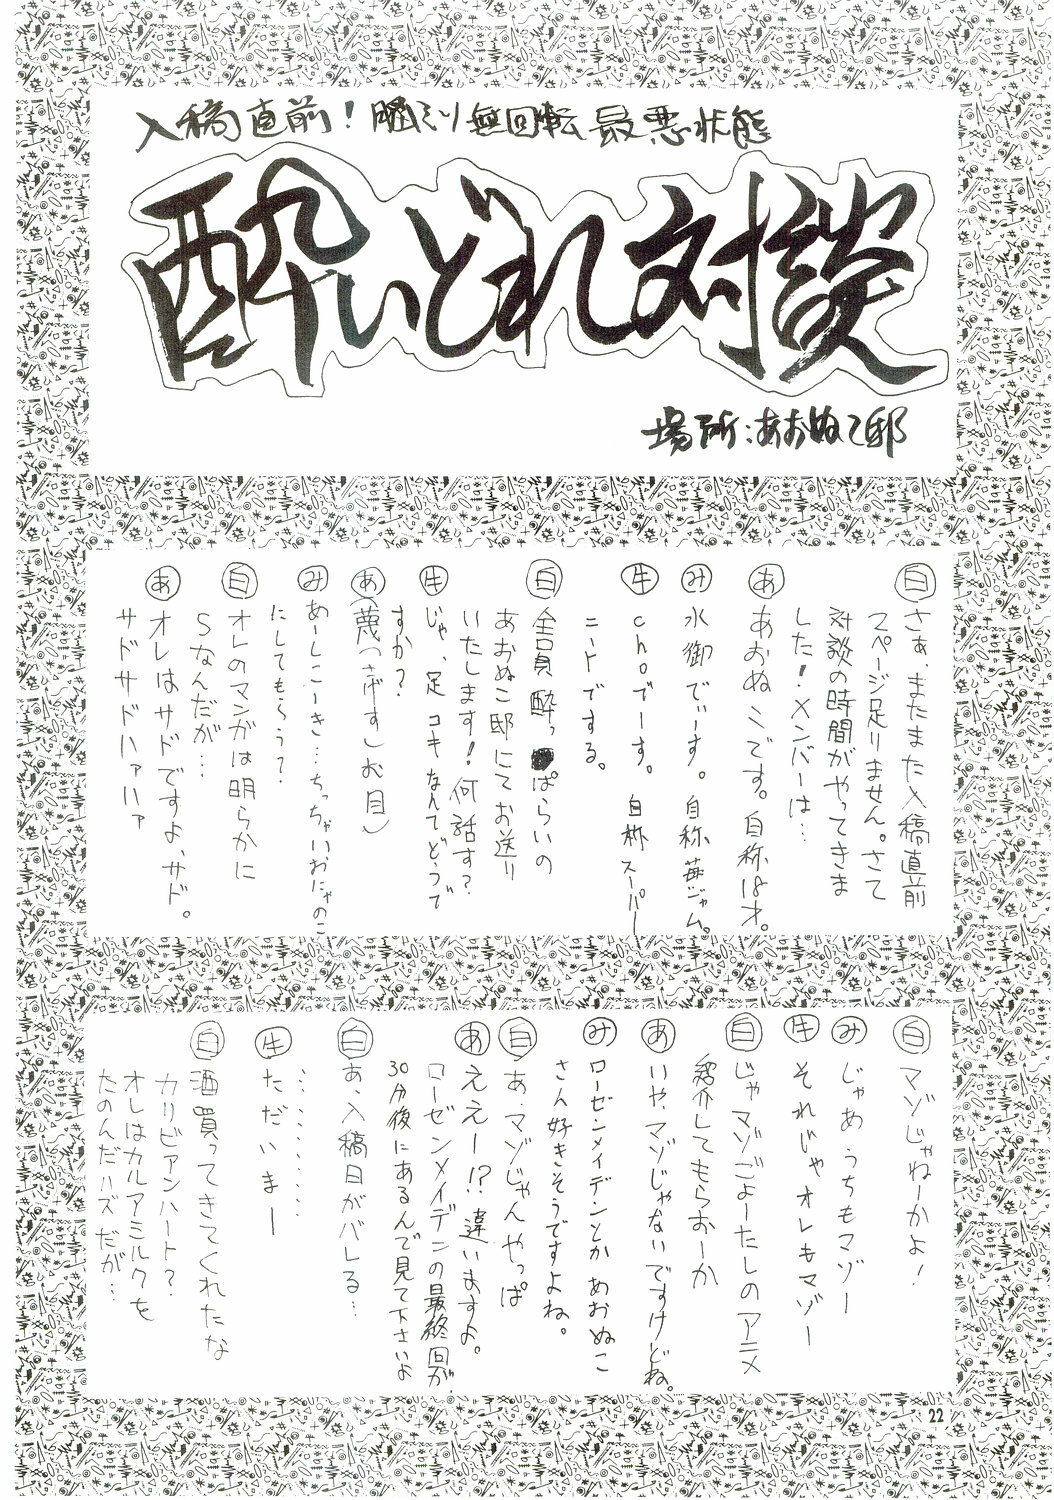 入稿直前！脳ミソ無回転最悪状態
酔いどれ対談
場所：あおぬこ邸
白 さぁ、またまた入稿直前
スページ足りません。さて
対談の時間がやってきま
した！メンバーは…
あ あおぬこです。自称18才。
み 水御でぃーす。自称苺ジャム。
牛 choでーす。自称スーパー
ニートでする。
白 全員酔っぱらいの
あおぬこ邸にてお送り
いたします！何話す？
牛 じゃ、足コキなんてどうで
すか？
あ (蔑っさげすしむ目)
み めーしこーき…ちっちゃいおにゃのこ
にしてもらう？
白 オレのマンガは明らかに
Sなんだが…
あ オレはサドですよ、サド。
サドサドハァハァ
白 マゾじゃねーかよ！
み じゃめうちもマゾー
牛 それじゃオレもマゾー
白 じゃマゾごよーたしのアニメ
紹介してもらおーか
あ いや、マゾじゃないですけどね。
み ローゼンメイデンとかあおぬこ
さん好きそうですよね。
白 あ、マゾじゃんやっぱ
あ ええー!?違いますよ。
ローゼンメイデンの最終回が
30分後にあるんで見て下さいよ
白 あ、入稿日がバレる…
………
牛 ただいまー
白 酒買ってきてくれたな
カリビアンハート？
オレはカルアミルクを
たのんだハズだが…
22